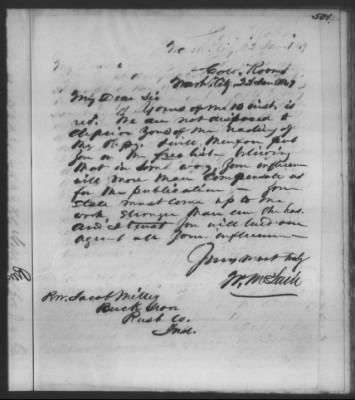 501
Colo. Rooms
Wash. City, 22 Jan 1849
My Dear Sir
Yours of the 10 inst. is
red. We are not disposed to
deprive you of the reading of
the Repy. I will therefore put
you on the free list, believing
that in some way, your influence
will more than compensate us
for the publication — Your
State must come up to the
work, stronger than ever she has.
And I trust you will lend our
agent all your influence
Yours most truly
W. McLain
Rev. Jacob Miller
Rush Co.
Ind.